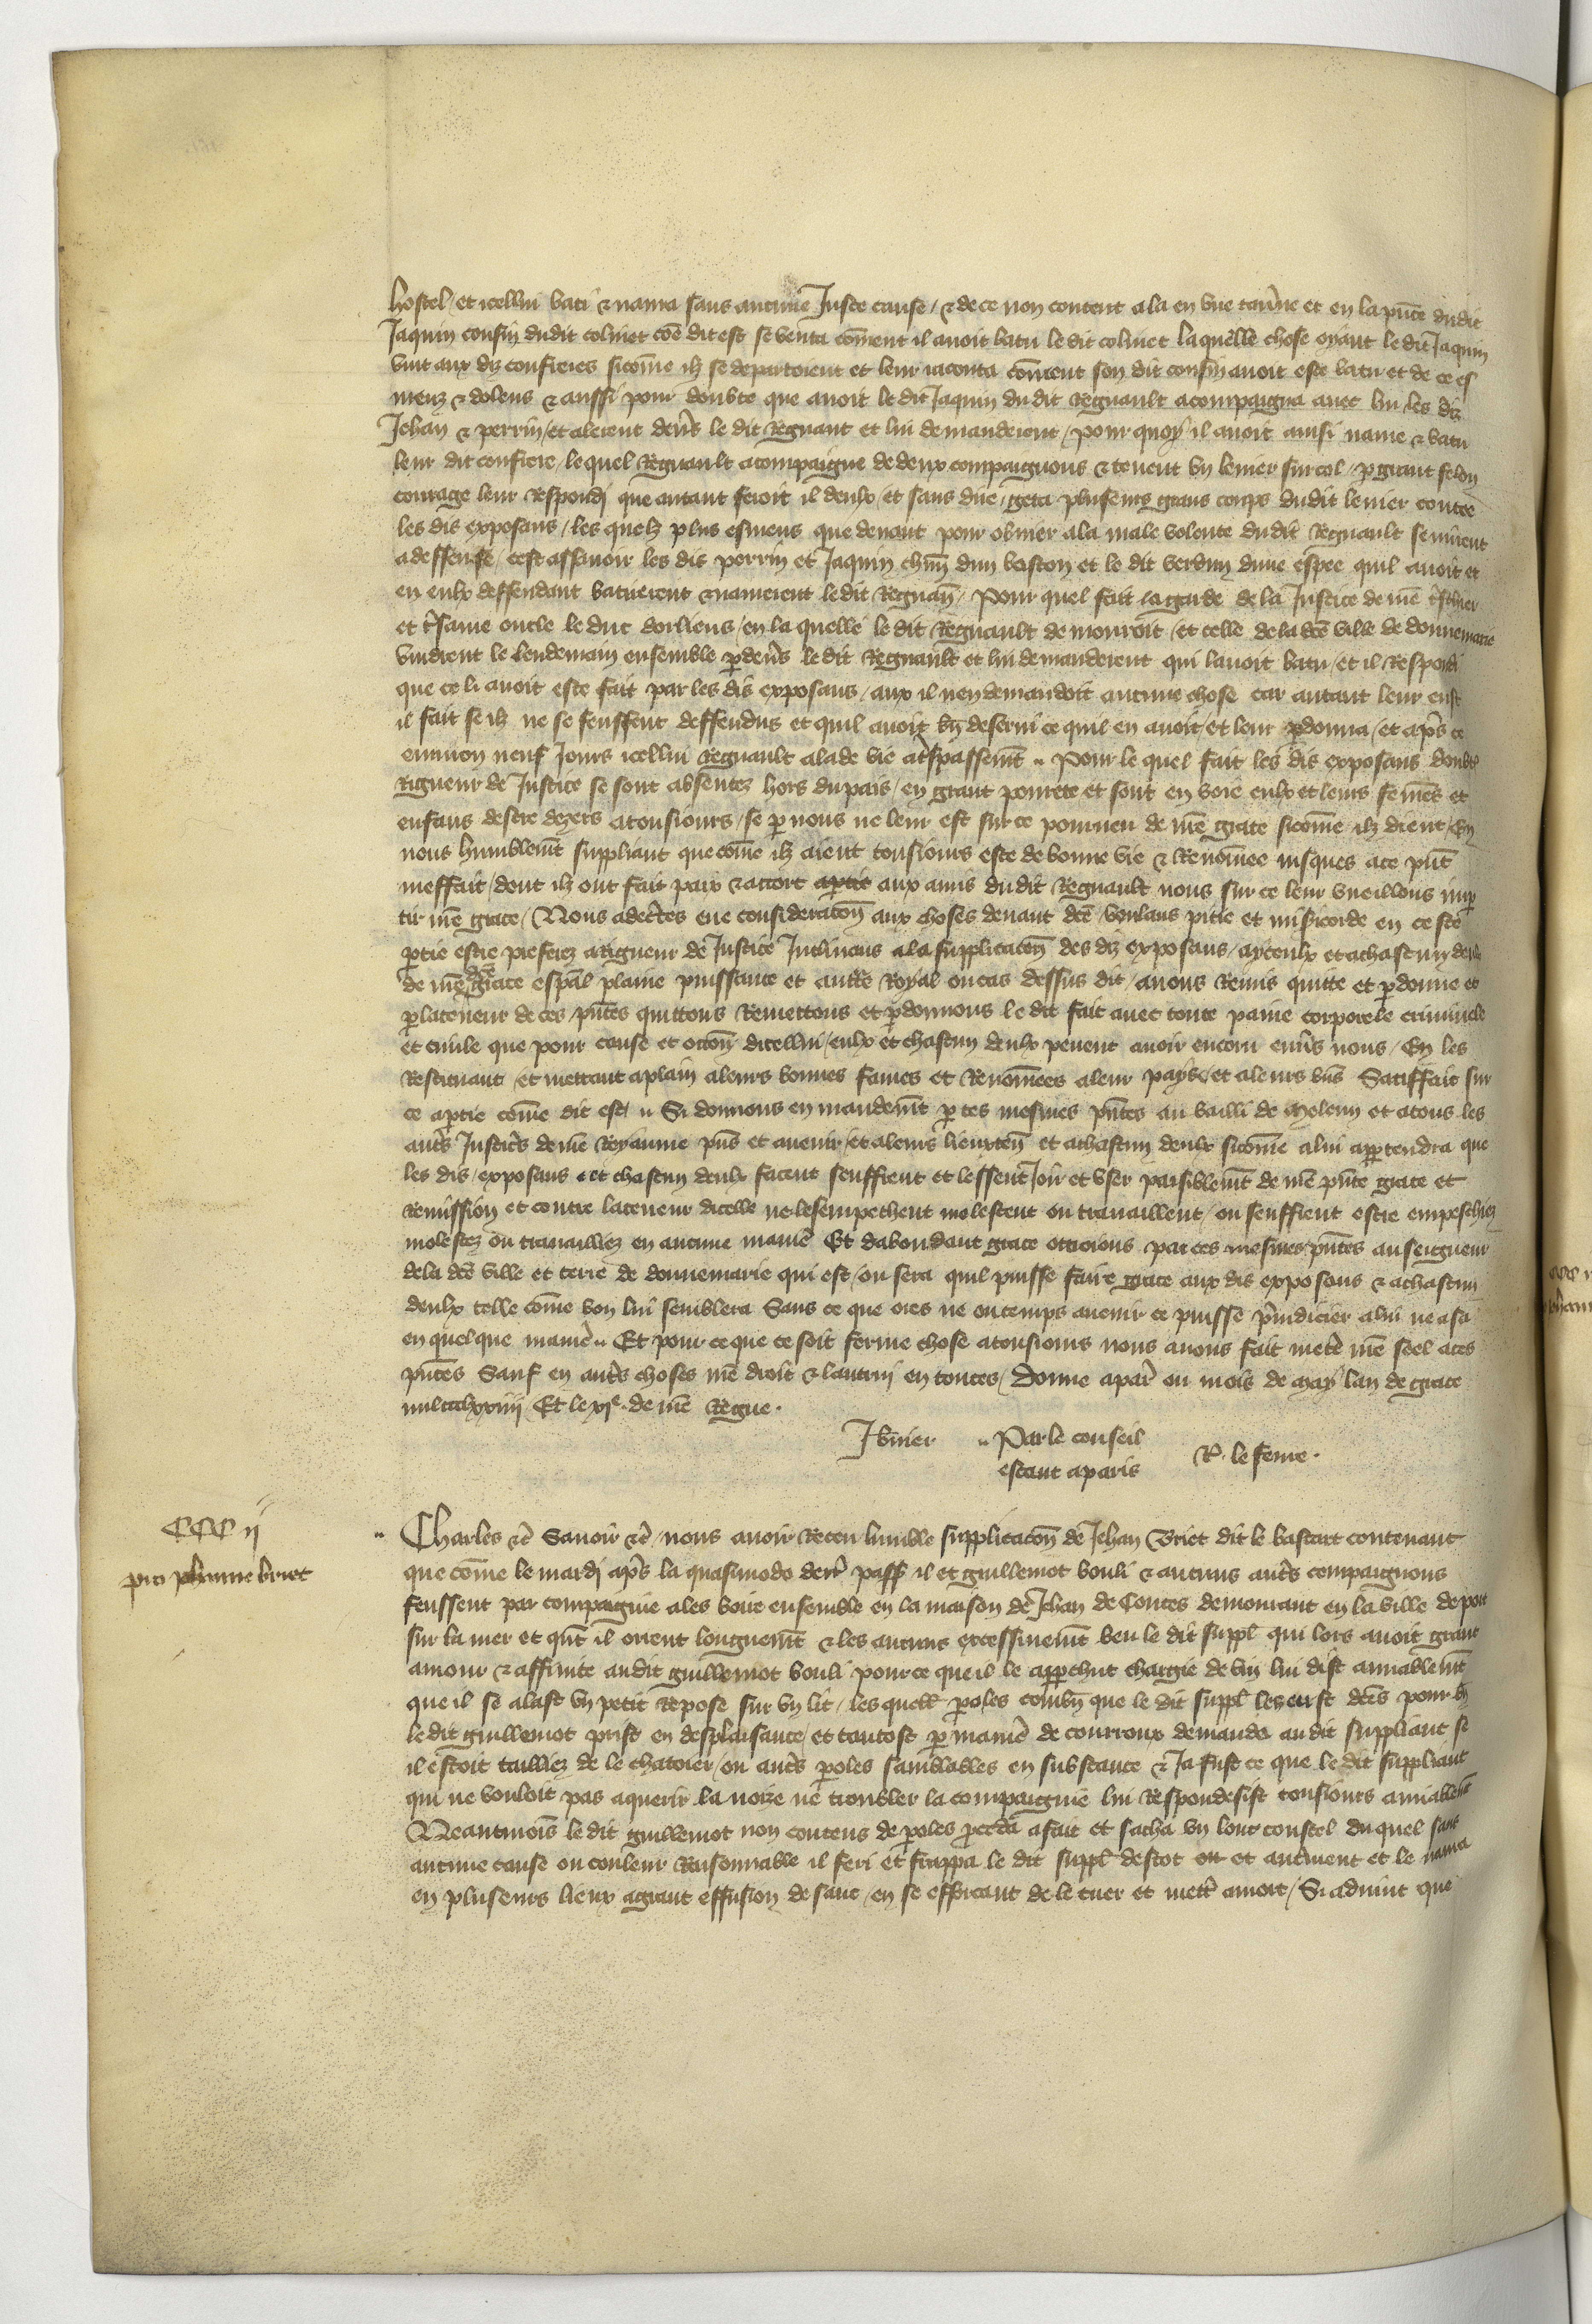 hostel / et icellui bati & navra sans aucune Juste cause / & de ce non content ala en une tav̄ne et en la p̄nce dudit
Jaquin cousin dudit colinet cōe dit est se venta cōment il avoit batu le dit colinet laquelle chose oyant le dit Jaquin
vint aux diz confreres sicōme ilz se departoient et leur raconta cōment son dit cousin avoit este batu et de ce es
meuz & dolens & aussi pour doubte que avoit le dit Jaquin dudit Regnault acompaigna avec lui les diz
Jehan & perrin / et alerent dev̄s le dit Regnaut et lui demanderent / pour quoy il avoit ainsi navre & batu
leur dit confrere / lequel Regnault acompaigne de deux compaignons & tenent un levier sur col / p grant felon
courage leur Respondi que autant feroit il deulx / et sans dire / geta plusieurs grans coups dudit levier contre
les dis exposans / les quelz plus esmeus que devant pour obvier ala male volente dudit Regnault se mirent
a deffense / cest assavoir les dis perrin et Jaquin chūn dun baston et le dit verdun dune espee quil avoit et
en eulx deffendant batirent & navrerent ledit Regnaū / Pour quel fait la garde de la Justice de nr̄e tschier
et tsame oncle le duc dorliens / en la quelle le dit Regnault demouroit / et celle de la dcē ville de donnemarie
vindrent le lendemain ensemble p dev̄s le dit Regnault et lui demanderent qui lavoit batu / et il Respondi
que ce li avoit este fait par les dis exposans / aux il nen demandoit aucune chose car autant leur eust
il fait se ilz ne se feussent deffendus et quil avoit bn̄ deservi ce quil en avoit / et leur pdonna / et ap̄s ce
environ neuf Jours icellui Regnault ala de vie a tspassem̄t .. Pour le quel fait les dis exposans doubt̄
Rigueur de Justice se sont absentez hors du pais / en grant povrete et sont en voie eulx et leurs femēs et
enfans destre dezers a tousiours / se p nous ne leur est sur ce pourveu de nr̄e grace sicōme ilz dient / En
nous humblem̄t suppliant que cōme ilz aient tousiours este de bonne vie & Renōmee iusques a ce p̄nt
meffait / dont ilz ont fait paix & accort aptie aux amis dudit Regnault nous sur ce leur vueillons imp
tir nr̄e grace / Nous adcetes eue consideracōn aux choses devant dcēs voulans pitie et misicorde en ceste
ptie estre preferez a Rigueur de Justice Inclinans a la supplicacōn des diz exposans / a yceulx et a chascun deulx
de nr̄e dcē grace esp̄al plaine puissance et auct̄e Royal ou cas dessus dit / avons Remis quitte et pdonne et
p la teneur de ces p̄ntes quittons Remettons et pdonnons le dit fait avec toute paine corporele criminele
et civile que pour cause et occōn dicellui / eulx et chascun deulx pevent avoir encoru env̄s nous / En les
Restituant / et mettant a plain a leurs bonnes fames et Renōmees a leur pays / et a leurs bn̄s Satisfait sur
ce a ptie cōme dit est / .. Si donnons en mandem̄t p ces mesmes p̄ntes au bailli de Meleun et a tous les
aut̄s Justic̄s de nr̄e Royaume p̄ns et avenir / et a leurs lieuxten̄ et a chascun deulx sicōme a lui appartendra que
les dis / exposans & et chascun deulx facent seuffrent et lessent Joīr et user paisiblem̄t de nr̄e p̄nte grace et
Remission et contre la teneur dicelle ne les empechent molestent ou travaillent / ou seuffrent estre empeschiez
molestez ou travailliez en aucune manie Et dabondant grace ottroions par ces mesmes p̄ntes au seigneur
de la dcē ville et terre de donnemarie qui est / ou sera quil puisse faire grace aux dis exposans & a chascun
deulx telle cōme bon lui semblera Sans ce que ores ne ou temps avenir ce puisse p̄iudicier a lui ne a sa
en quelque manie .. Et pour ce que ce soit ferme chose a tousiours nous avons fait mett̄ nr̄e seel a ces
p̄ntes Sauf en aut̄s choses nr̄e droit & lautruy en toutes / Donne a par̄ ou mois de may lan de grace
mil ccc iiiixx iiij Et le iiije de nr̄e Regne .
J bnier .. Par le conseil
estant a paris R . le fevre .
CCC ij
pro Johanne briet
.. Charles &c̄ Savoir &c̄ / nous avoir Receu humble supplicacōn de Jehan Briet dit le bastart contenant
que cōme le mardi ap̄s la quasimodo den̄r pass̄ il et guillemot bouli & aucuns aut̄s compaignons
feussent par compaignie ales boire ensemble en la maison de Jehan de Contes demourant en la ville de port
sur la mer et qn̄t il orent longuem̄t & les aucuns excessivem̄t beu le dit suppl̄ qui lors avoit grant
amour & affinite audit guillemot bouli pource que il le apperchut chargie de vin lui dist amiablem̄t
que il se alast un petit Repose sur un lit / les quell̄ poles combn̄ que le dit suppl̄ les eust dc̄es pour bn̄
ledit guillemot prist en desplaisance / et tantost p manie de courroux demande au dit suppliant se
il estoit tailliez de le chatoier / ou aut̄s poles samblables en substance & Ja fust ce que le dit suppliant
qui ne vouloit pas aquerir la noize ne troubler la compaignie lui Respondesist tousiours amiablem̄t
Neantmois le dit guillemot non contens de poles pceda a fait et sacha un lonc coustel duquel sans
aucune cause ou couleur Raisonnable il feri et frappa le dit suppl̄ destoc ou et autrement et le navra
en plusieurs lieux a grant effusion de sanc / en se efforcant de le tuer et mett̄ a mort / Si advint que